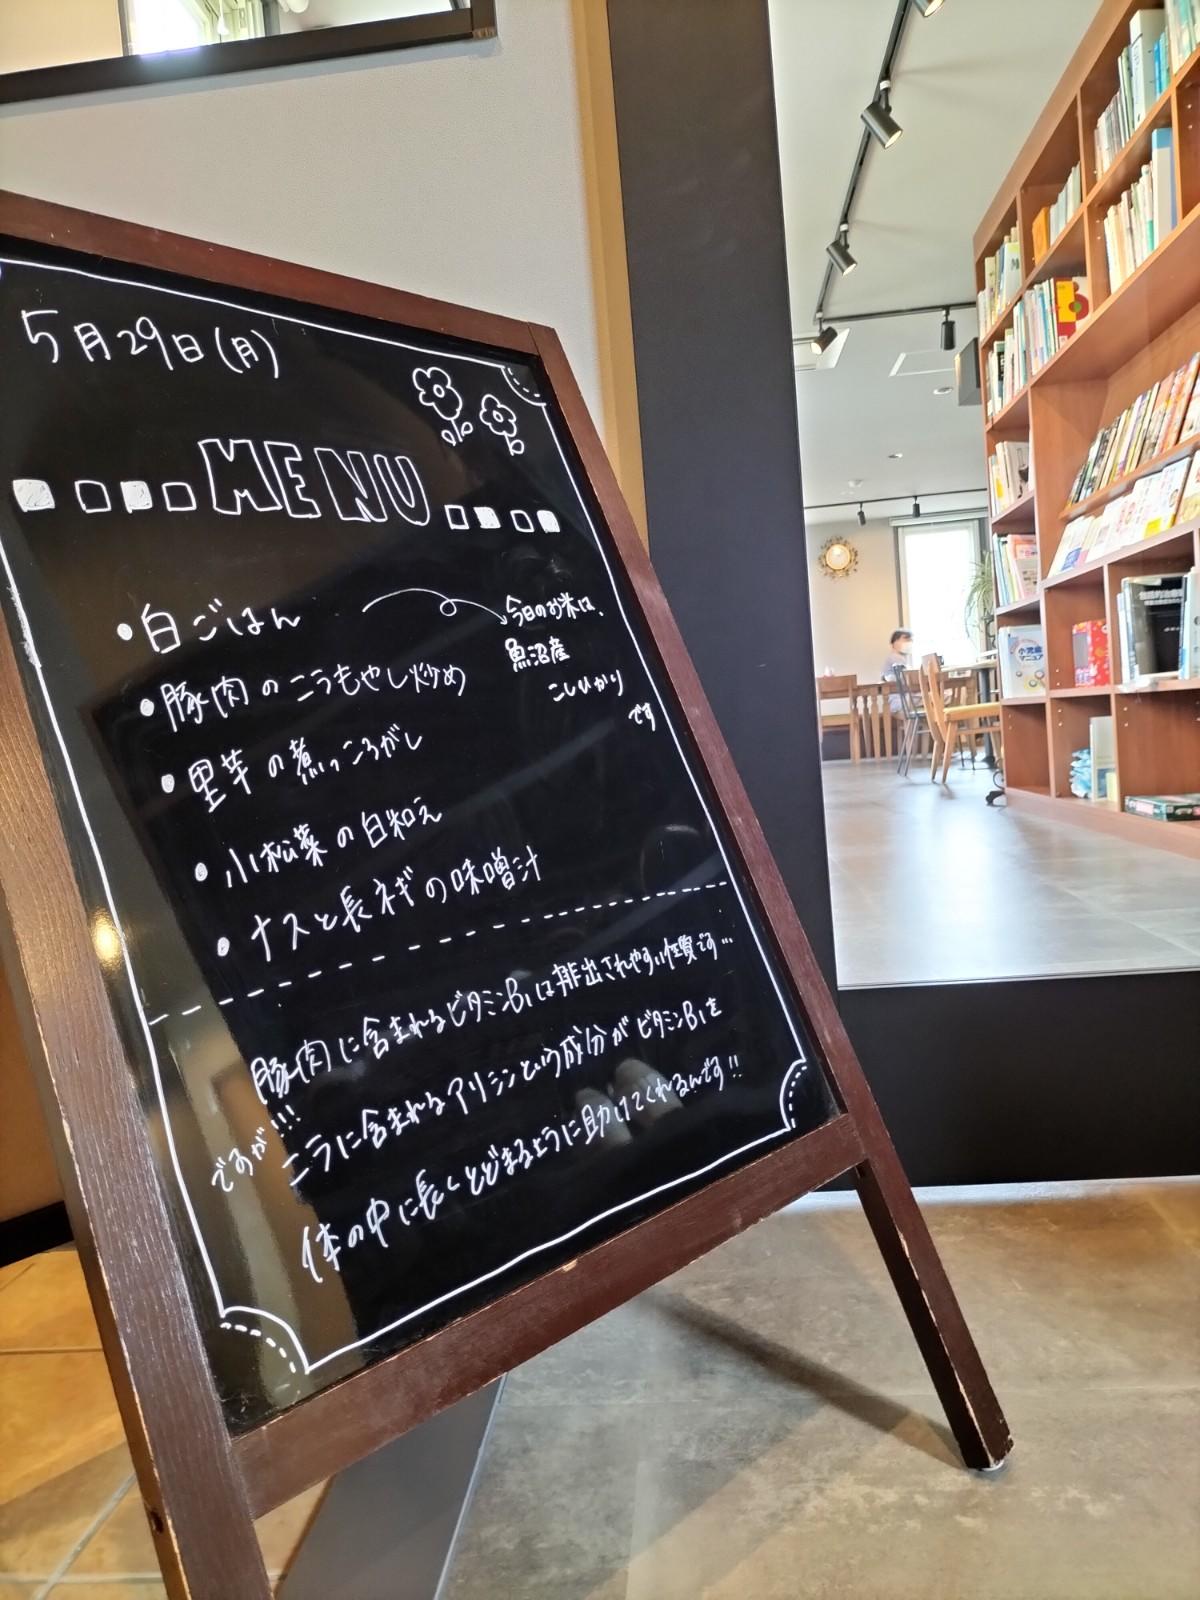 5月29日(月)
MENU
・白ごはん
今日のお米は、
魚沼産
こしひかり
です
・豚肉のニラもやし炒め
・里芋の煮っころがし
・小松菜の白和え
・ナスと長ネギの味噌汁
豚肉に含まれるビタミンB₁は排出されやすい性質です…
ですが!!!
ニラに含まれるアリシンという成分がビタミンB₁を
体の中に長くとどまるように助けてくれるんです!!
小児歯科
マニュアル